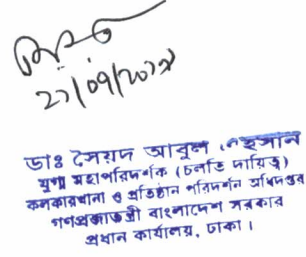 ডাঃ সৈয়দ আবুল এহসান
যুগ্ম মহাপরিদর্শক (চলতি দায়িত্ব)
কলকারখানা ও প্রতিষ্ঠান পরিদর্শন অধিদপ্তর
গণপ্রজাতন্ত্রী বাংলাদেশ সরকার
প্রধান কার্যালয়, ঢাকা।